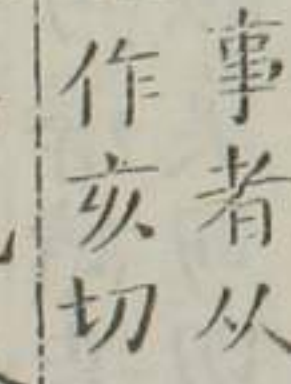 事者从
作亥切